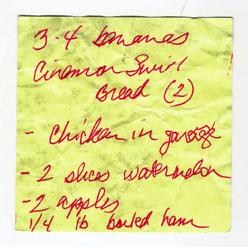 3-4 bananas
Cinamon Swirl
Bread (2)
- chicken in garage
- 2 slices watermelon
- 2 apples
1/4 lb boiled ham